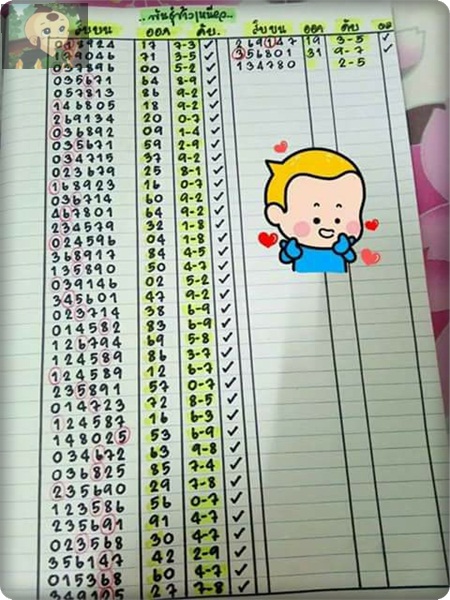 ..พันธุ์ข้าวเหนียว..
วิ่งบน ออก ดับ. วิ่งบน ออก ดับ ผล
018924 17 7-3 ✓ 269147 19 3-5 ✓
179046 71 3-5 ✓ 356801 31 9-7 ✓
037496 00 5-2 ✓ 134780 2-5
035671 64 8-9 ✓
057813 86 9-2 ✓
146805 18 9-2 ✓
269134 20 0-7 ✓
036892 09 1-4 ✓
035671 59 2-9 ✓
034715 37 9-2 ✓
023679 25 8-1 ✓
168923 16 0-7 ✓
036714 60 9-2 ✓
467801 64 9-2 ✓
234579 32 1-8 ✓
024596 04 1-8 ✓
368917 84 4-5 ✓
135890 50 4-7 ✓
039146 02 5-2 ✓
345601 47 9-2 ✓
023714 38 6-9 ✓
014582 83 6-9 ✓
126794 69 5-8 ✓
124589 86 3-7 ✓
124589 12 6-7 ✓
235891 57 0-7 ✓
014723 72 8-5 ✓
124587 16 6-3 ✓
148025 53 6-9 ✓
034672 63 9-8 ✓
036825 85 7-4 ✓
235690 29 7-8 ✓
123586 56 0-7 ✓
235691 91 4-7 ✓
023568 30 4-7 ✓
356147 42 2-9 ✓
015368 60 4-7 ✓
349125 27 7-8 ✓